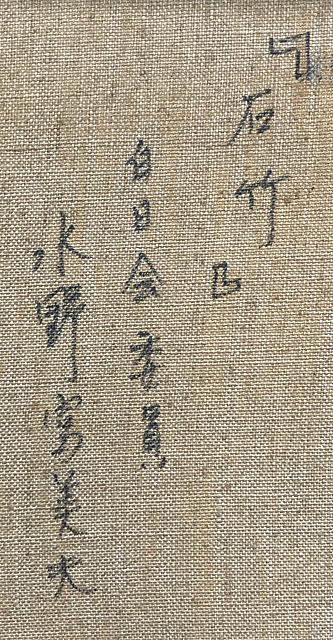 『石竹』
白日会委員
水野富美夫